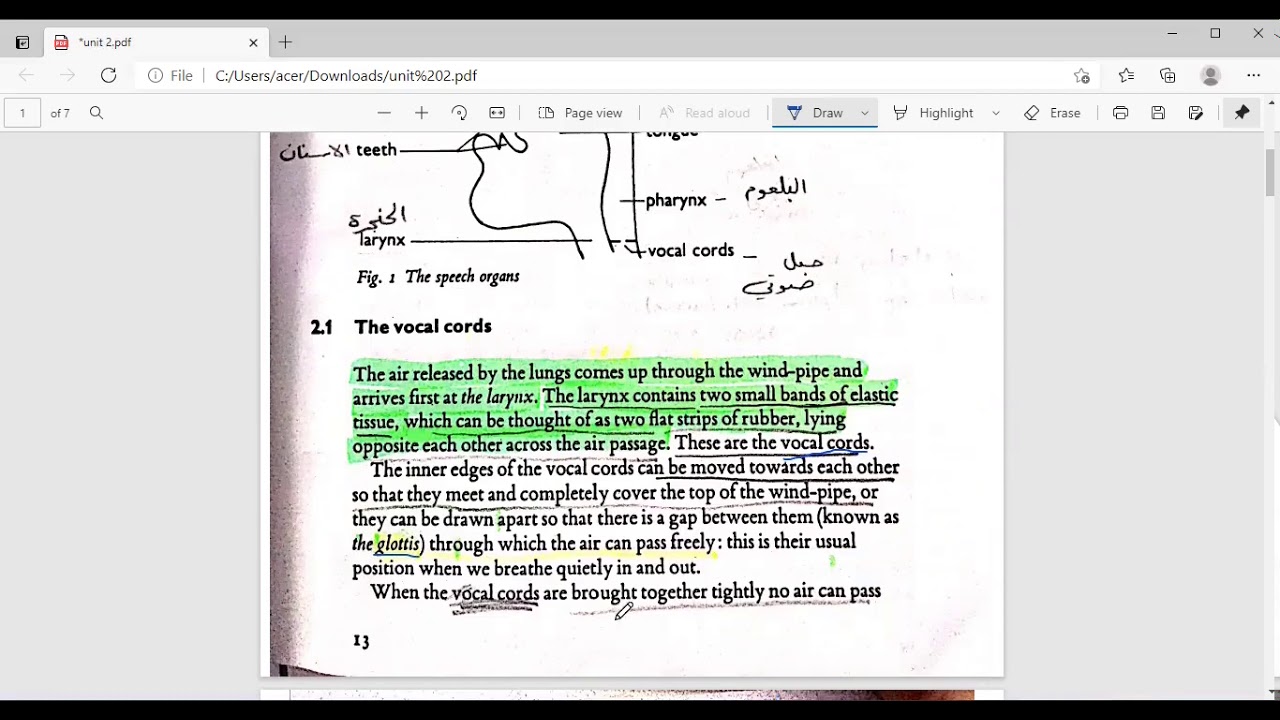 *unit 2.pdf
File C:/Users/acer/Downloads/unit%202.pdf
1 of 7 Page view Read aloud Draw Highlight Erase
الاسنان teeth
tongue
pharynx – البلعوم
الحنجرة
larynx
vocal cords – حبل
صوتي
Fig. 1 The speech organs
2.1 The vocal cords
The air released by the lungs comes up through the wind-pipe and
arrives first at the larynx. The larynx contains two small bands of elastic
tissue, which can be thought of as two flat strips of rubber, lying
opposite each other across the air passage. These are the vocal cords.
The inner edges of the vocal cords can be moved towards each other
so that they meet and completely cover the top of the wind-pipe, or
they can be drawn apart so that there is a gap between them (known as
the glottis) through which the air can pass freely: this is their usual
position when we breathe quietly in and out.
When the vocal cords are brought together tightly no air can pass
13